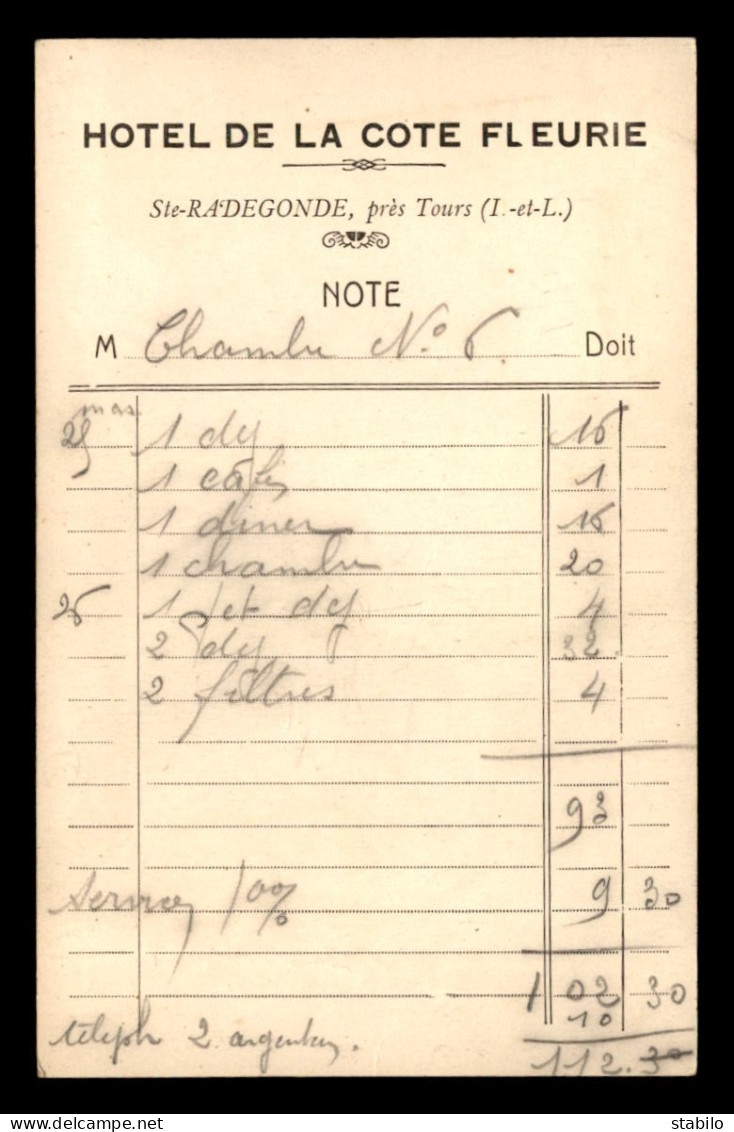 HOTEL DE LA COTE FLEURIE
Ste-RADEGONDE, près Tours (I.-et-L.)
NOTE
M Chambre No 6 Doit
25 mars 1 dej 16
1 café 1
1 diner 16
1 chambre 20
26 1 pet dej 4
2 dej 32
2 filtres 4
93
Service 10% 9 30
102 30
10
téleph 2 argentan.
112.30
stabilo